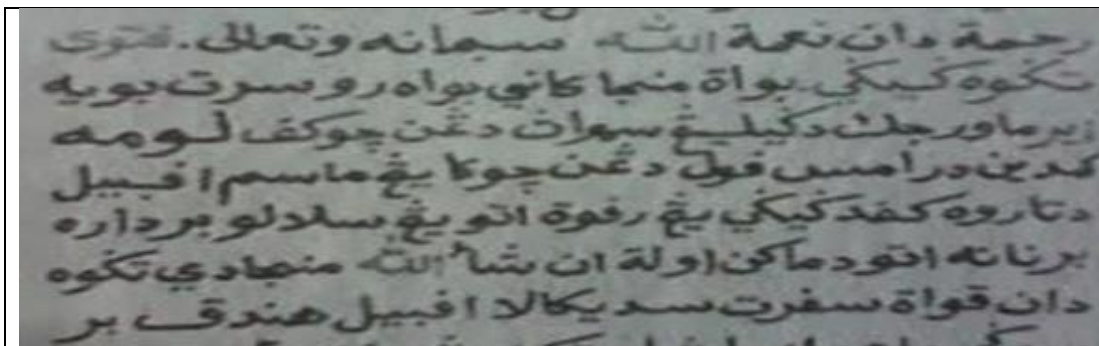 رحمة دان نعمة الله سبحانه وتعالى. فتوى
تكوه كيكي. بواة منجا كاني بواه رو سرت بويه
زيرماور جك دكيليڠ سهراڽ دڠن چوكف لومه
كمدين درامس فول دڠن چوكا يڠ ماسم افبيل
دتاروه كفد كيكي يڠ رفوة اتو يڠ سلالو برداره
برنانه اتو دماكن اولة ان شاء الله منجادي تكوه
دان قواة سفرت سديكالا افبيل هندق بر